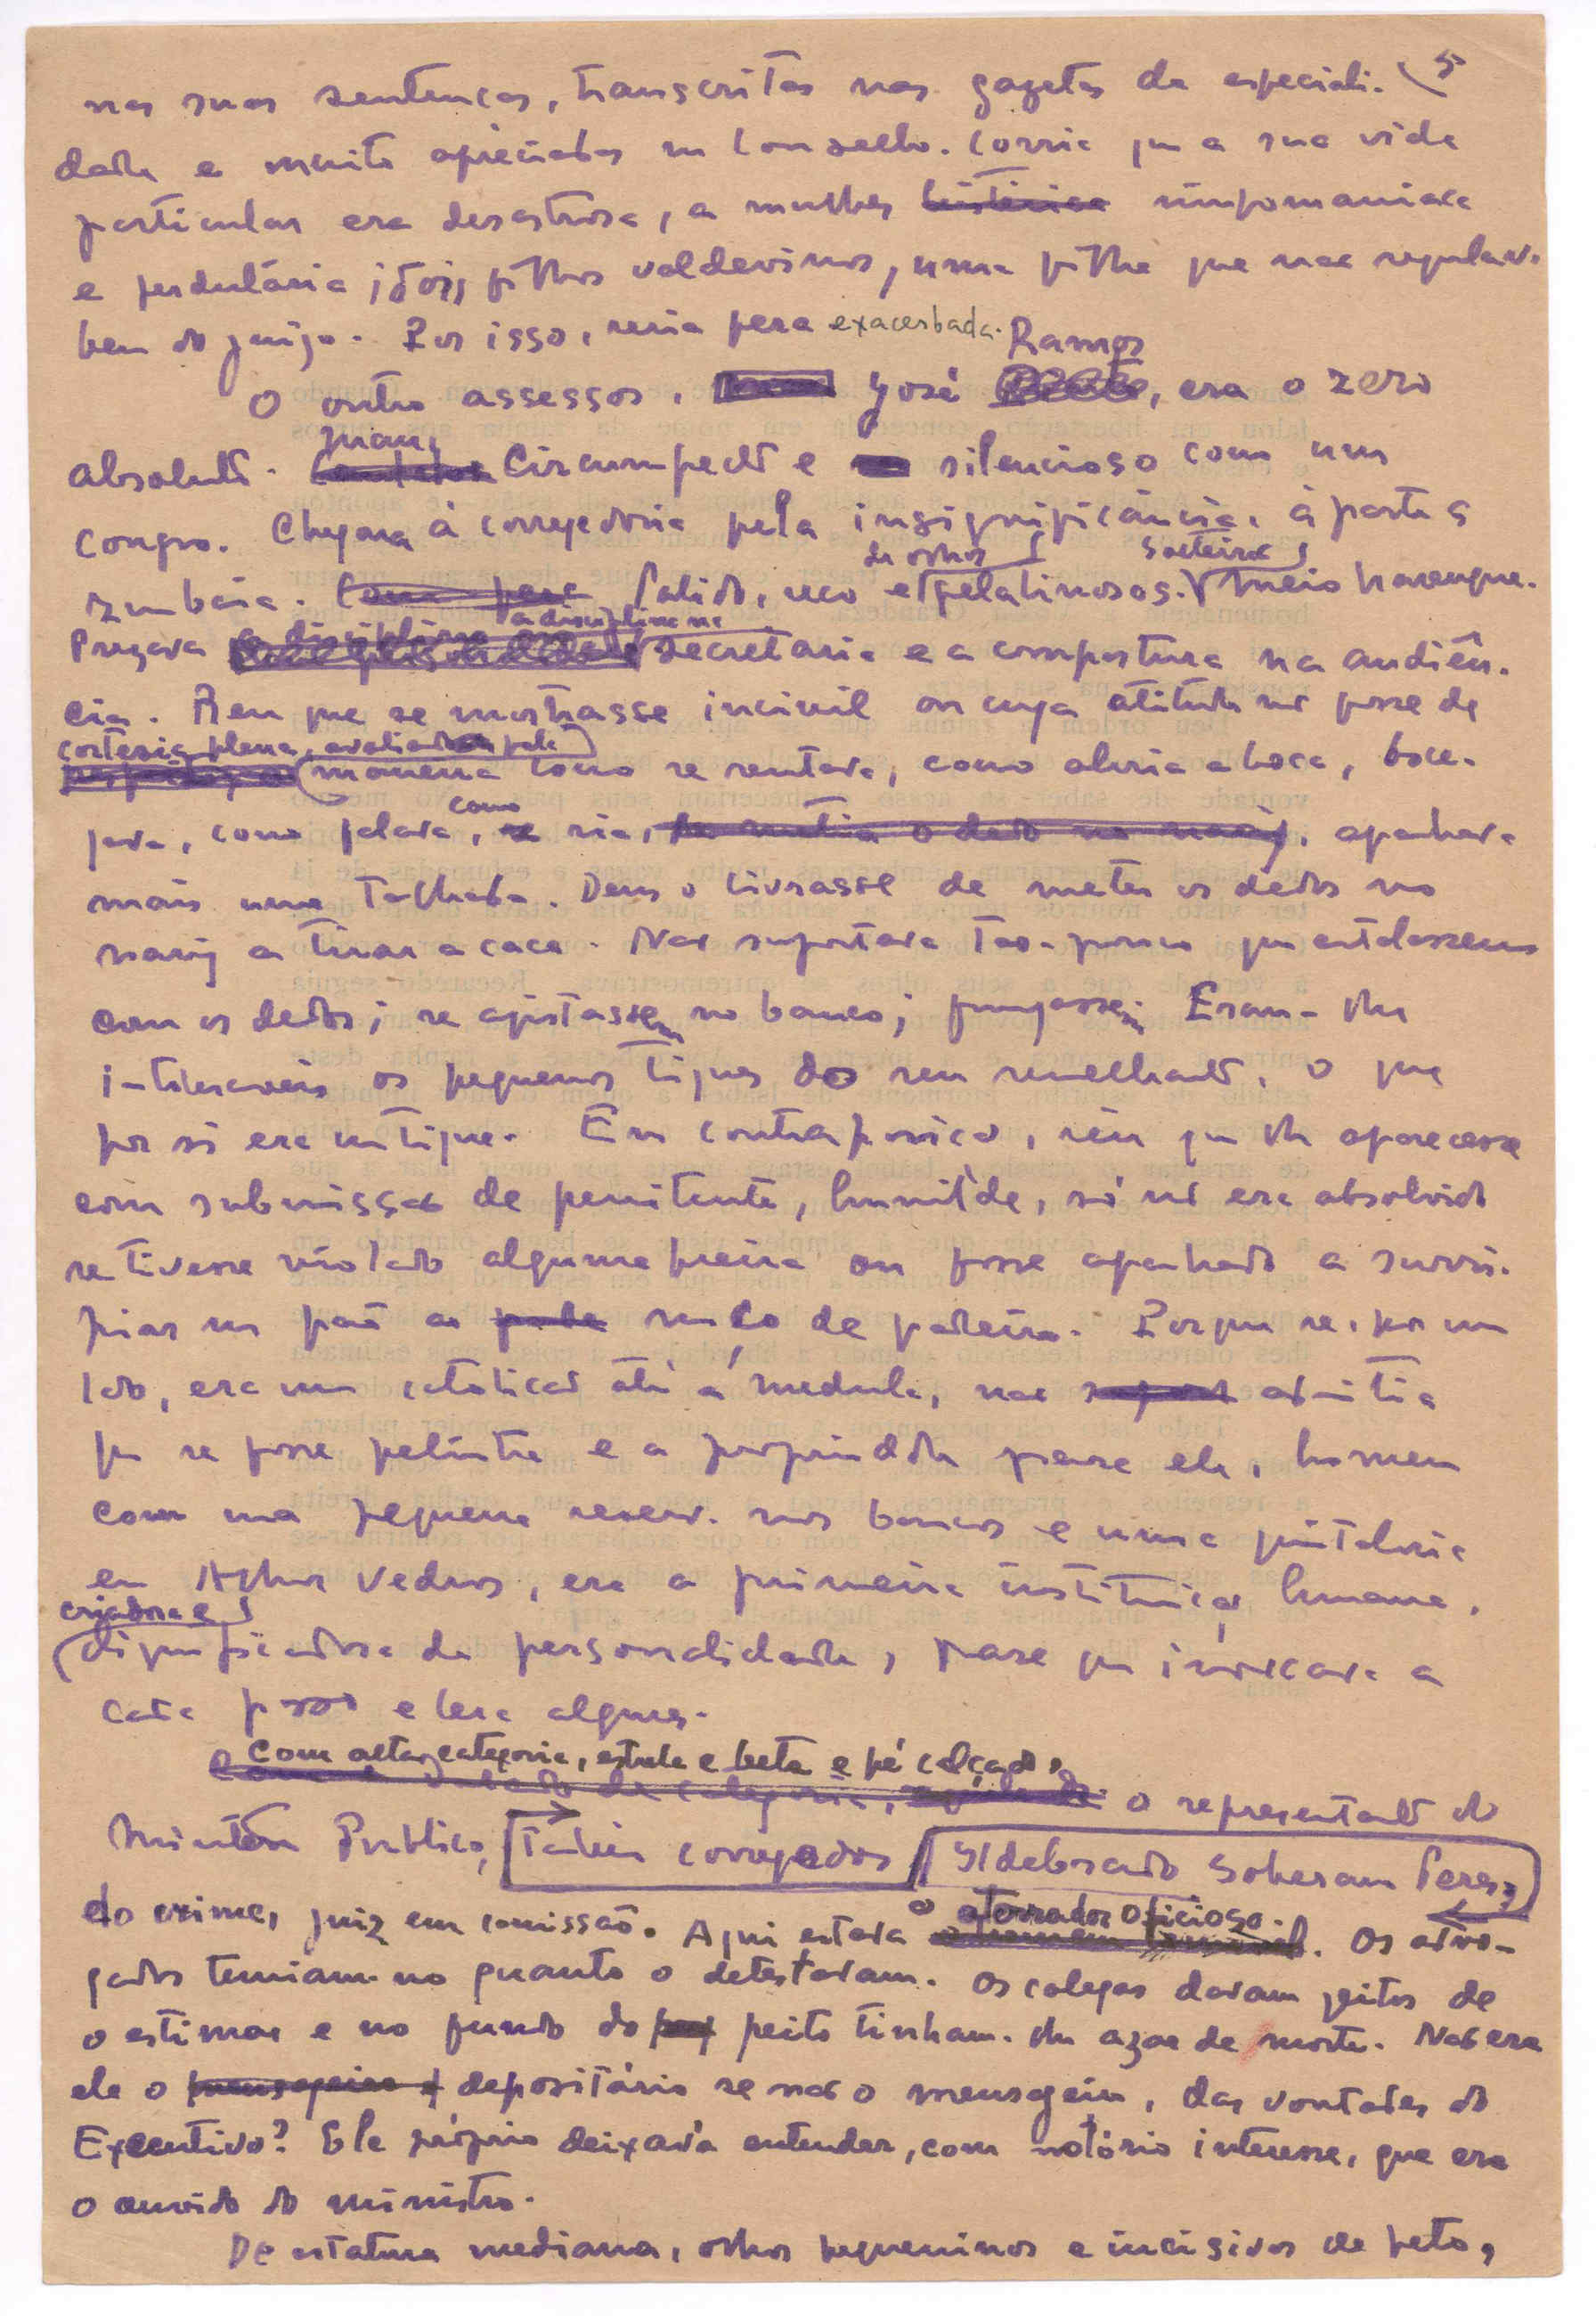 5
nas suas sentenças, transcritas nas gazetas da especiali-
dade e muito apreciadas no Conselho. Corria que a sua vida
particular era desastrosa, a mulher histérica ninfomaniaca
e perdulária; dois filhos valdevinos, uma filha que não regulava
bem do juizo. Por isso, seria fera exacerbada.
Ramos
O outro assessor, José, era o zero
absoluto. Circumspecto e silencioso como um
congro. Chegara à corregedoria pela insignificância, à parte a
de olhos solteirão
zumbaia. Como pera Palido, seco e gelatinosos. meio harengue.
a disciplina na
Prezava secretaria e a compostura na audiên-
cia. Reu que se mostrasse incivil ou cuja atitude não fosse de
cortesia plena, avaliada pela
maneira como se sentava, como abria a boca, boce-
como
java, como falava, se ria, ou metia o dedo no nariz, apanhava
mais uma talhada. Deus o livrasse de meter os dedos no
nariz a tirar a caca. Não suportava tão-pouco que estalassem
com os dedos; se agitassem no banco; fungassem. Eram-lhe
intoleraveis os pequenos tiques do seu semelhante, o que
por si era um tique. Em contraposição, réu que lhe aparecesse
com submissão de penitente, humilde, só não era absolvido
se tivesse violado alguma freira ou fosse apanhado a surri-
piar um pão ao moço de padeiro. Porque se, por um
lado, era um catolicão até à medula, não admitia
que se fosse pelintra e a propriedade para ele, homem
com uma pequena reserva nos bancos e uma quintaloria
em Alhos Vedros, era a primeira instituição humana,
criadora e
dignificadora da personalidade, frase que invocava a
cada passo e lera algures.
Com alta categoria, estrela e beta e pé calçado,
o representante do
Ministério Publico, tambem corregedor Ildebrando Soberam Peres,
do crime, juiz em comissão. Aqui estava
o aterrador oficioso.
Os advo-
gados temiam-no quanto o detestavam. Os colegas davam jeitos de
o estimar e no fundo do peito tinham-lhe azar de morte. Não era
ele o mensageiro e depositário se não o mensageiro, das vontades do
Executivo? Ele próprio deixava entender, com notório interesse, que era
o ouvido do ministro.
De estatura mediana, olhos pequeninos e incisivos de peto,